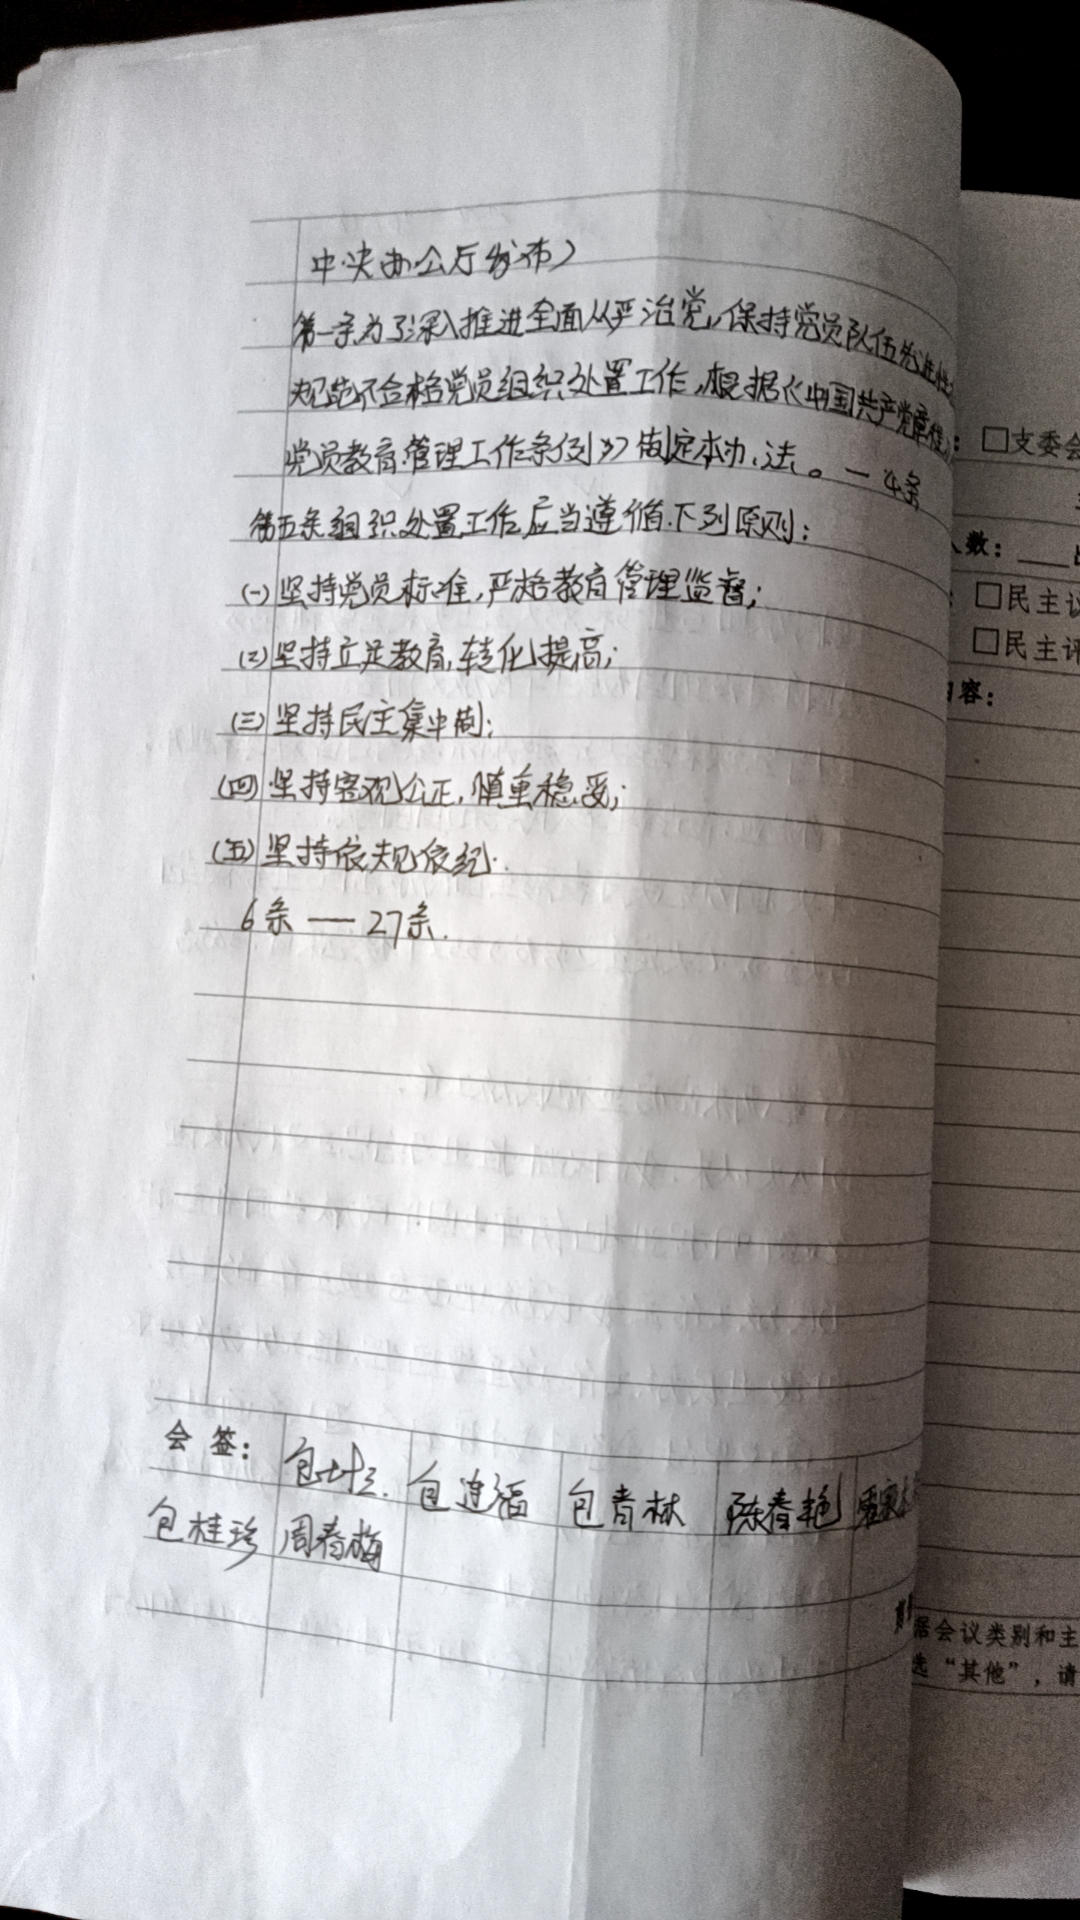 中央办公厅发布）
第一条为了深入推进全面从严治党，保持党员队伍先进性
规范不合格党员组织处置工作，根据《中国共产党章程》
党员教育管理工作条例》制定本办法。一4条
第五条组织处置工作应当遵循下列原则：
(一)坚持党员标准，严格教育管理监督；
(二)坚持立足教育，转化提高；
(三)坚持民主集中制；
(四)坚持客观公正，慎重稳妥；
(五)坚持依规依纪.
6条 — 27条.
会 签： 包 包连福 包青林 陈春艳
包桂珍 周春梅
：□支委会
人数：
□民主议
□民主评
内容：
据会议类别和主
选“其他”，请